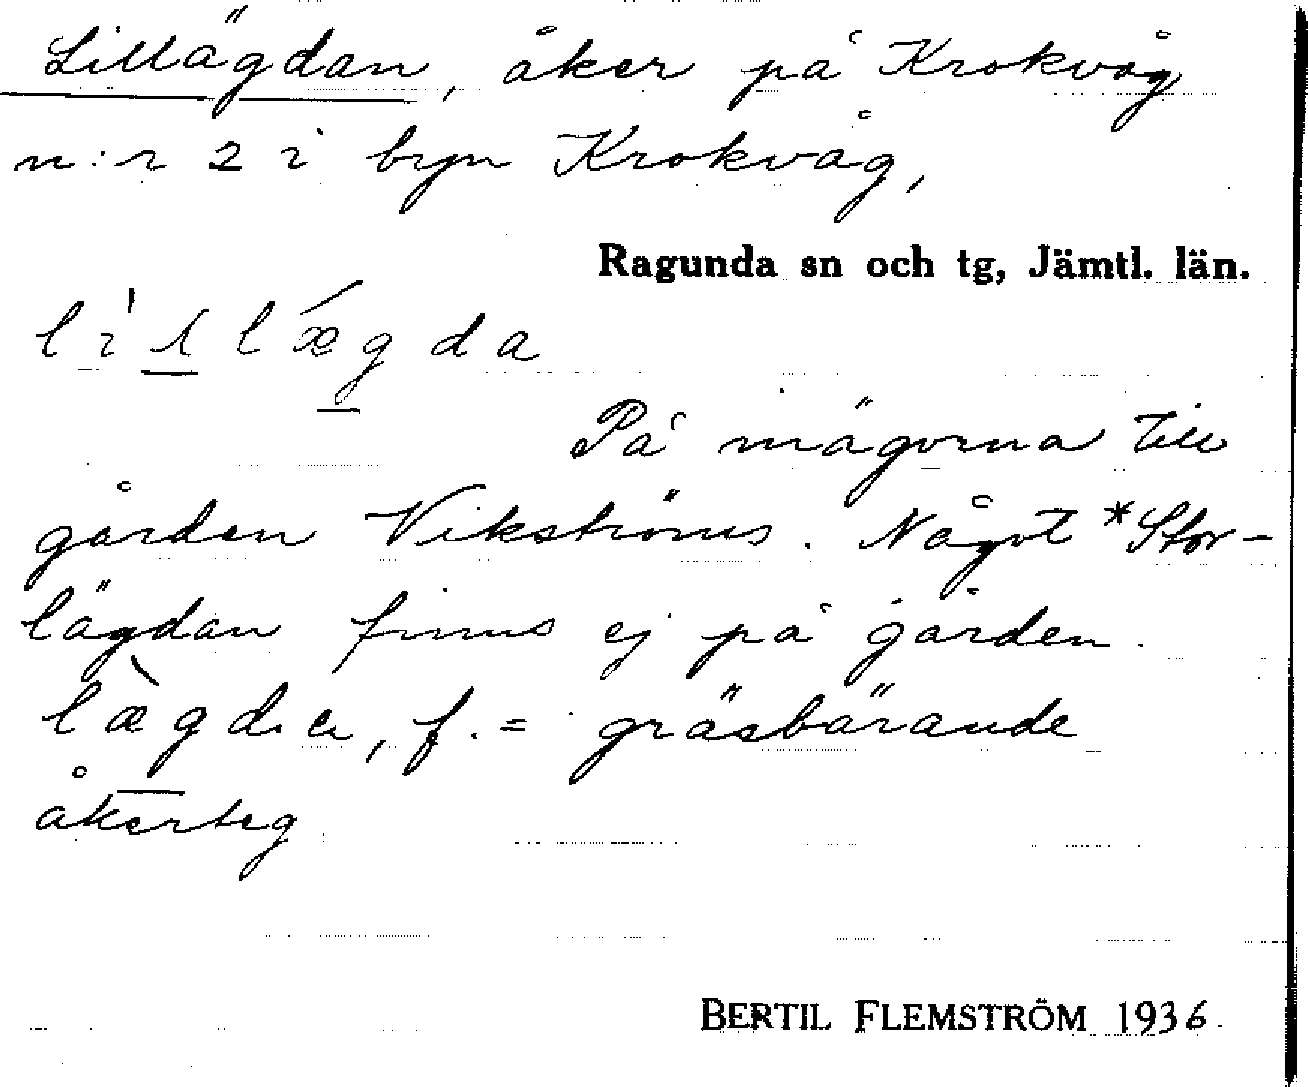 Lillägdan, åker på Krokvåg
n:r 2 i byn Krokvåg,
Ragunda sn och tg, Jämtl. län.
På mägorna till
gården Vikströms. Något *Stor-
lägdan finns ej på gården.
f. = gräsbärande
åkerteg
BERTIL FLEMSTRÖM 1936